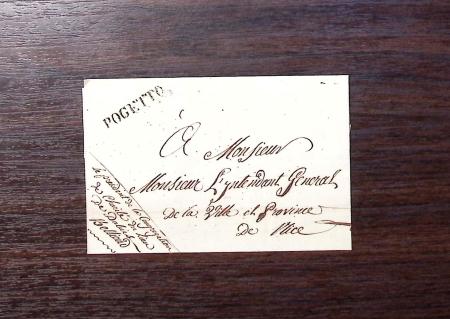 POGETTO
A Monsieur
Monsieur L'yntendant General
de la Ville et Province
de Nice
de la
de